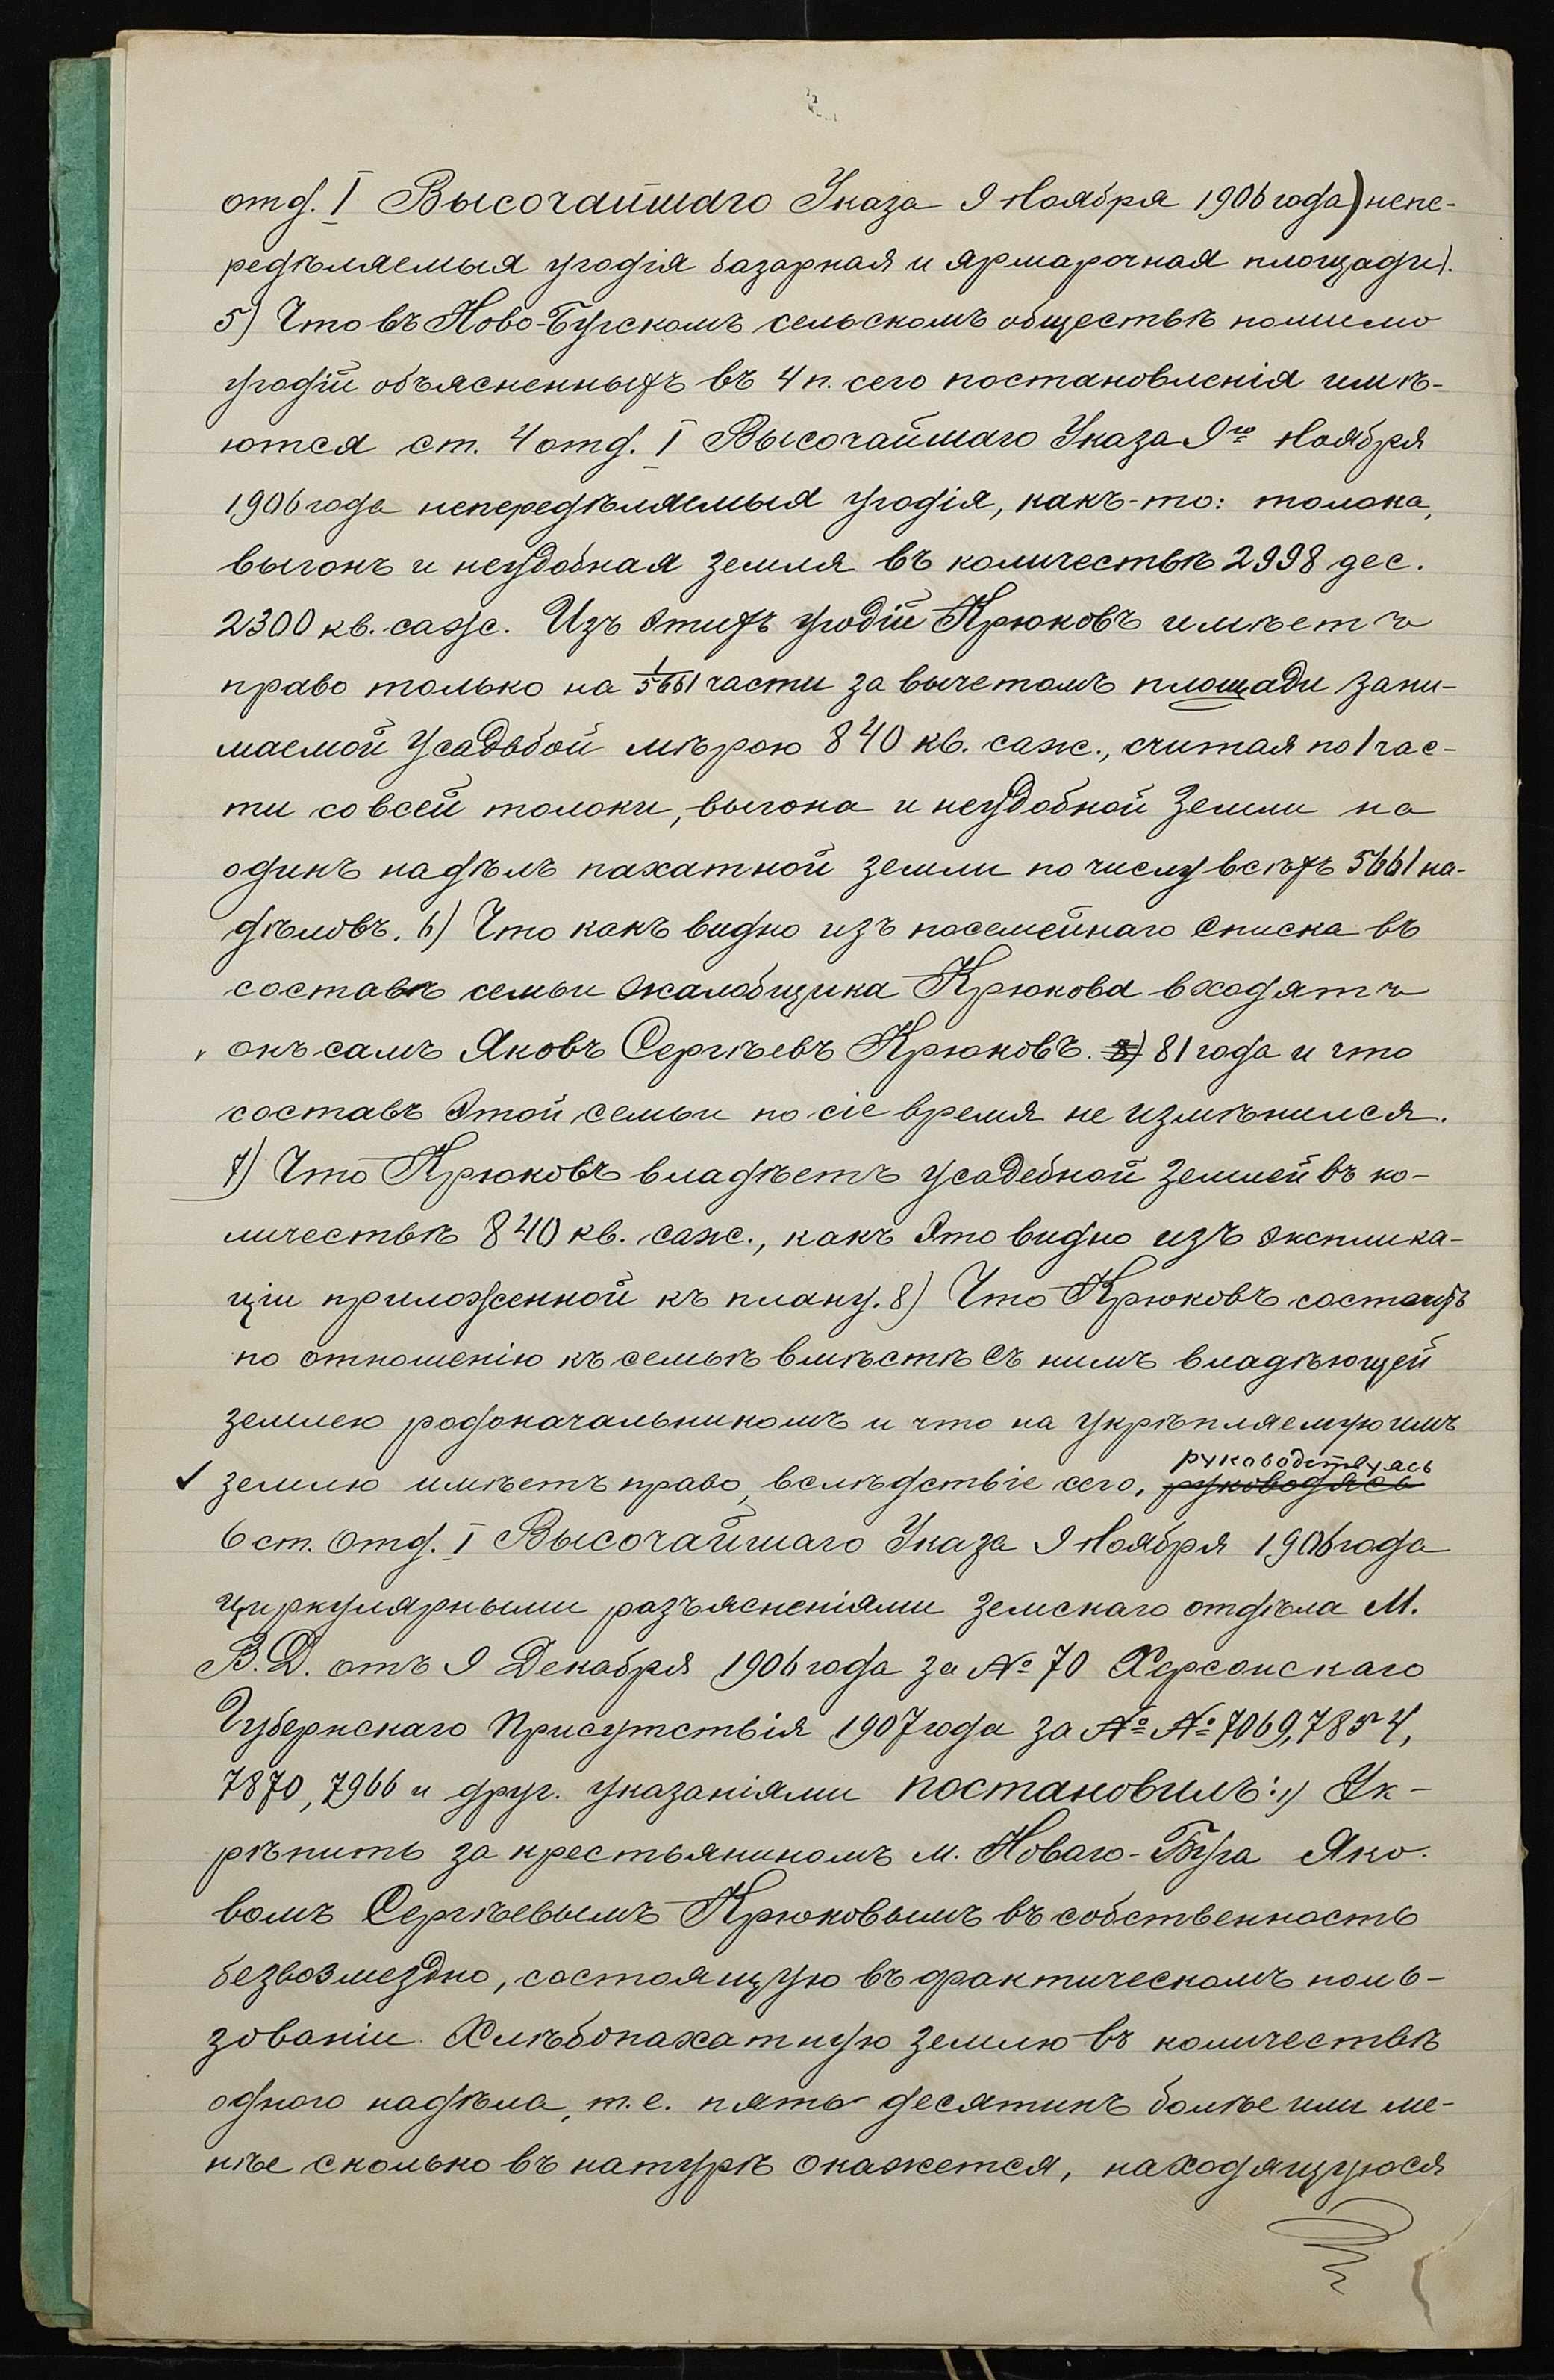 отд. I Высочайшаго Указа 9 Ноября 1906 года) непе-
редѣляемыя угодія базарная и ярмарочная площади).
5) Что въ Ново-Бугскомъ сельскомъ обществѣ помимо
угодій объясненныхъ въ 4 п. сего постановленія имѣ-
ются ст. 4 отд. I Высочайшаго Указа 9го Ноября
1906 года непередѣляемыя угодія, какъ-то: толока,
выгонъ и неудобная земля въ количествѣ 2998 дес.
2300 кв. саж. Изъ этихъ угодій Крюковъ имѣетъ
право только на 1/5661 части за вычетомъ площади зани-
маемой усадьбой мѣрою 840 кв. саж., считая по 1 час-
ти со всей толоки, выгона и неудобной земли на
одинъ надѣлъ пахатной земли по числу всѣхъ 5661 на-
дѣловъ. 6) Что какъ видно изъ посемейнаго списка въ
составъ семьи жалобщика Крюкова входятъ
онъ самъ Яковъ Сергѣевъ Крюковъ. 8) 81 года и что
составъ этой семьи по сіе время не измѣнился.
7) Что Крюковъ владѣетъ усадебной землей въ ко-
личествѣ 840 кв. саж., какъ это видно изъ эксплика-
ціи приложенной къ плану. 8) Что Крюковъ состоитъ
по отношенію къ семьѣ вмѣстѣ съ нимъ владѣющей
землею родоначальникомъ и что на укрѣпляемую имъ
руководствуясь
землю имѣетъ право, вслѣдствіе сего, руководясь
6 ст. Отд. I Высочайшаго Указа 9 Ноября 1906 года
циркулярными разъясненіями Земскаго отдѣла М.
В. Д. отъ 9 Декабря 1906 года за № 70 Херсонскаго
Губернскаго Присутствія 1907 года за №№ 7069, 7854,
7870, 7966 и друг. указаніями постановилъ: 1) Ук-
рѣпить за крестьяниномъ м. Новаго-Буга Яко-
вомъ Сергѣевымъ Крюковымъ въ собственность
безвозмездно, состоящую въ фактическомъ поль-
зованіи хлѣбопахатную землю въ количествѣ
одного надѣла, т.е. пять десятинъ болѣе или ме-
нѣе сколько въ натурѣ окажется, находящуюся